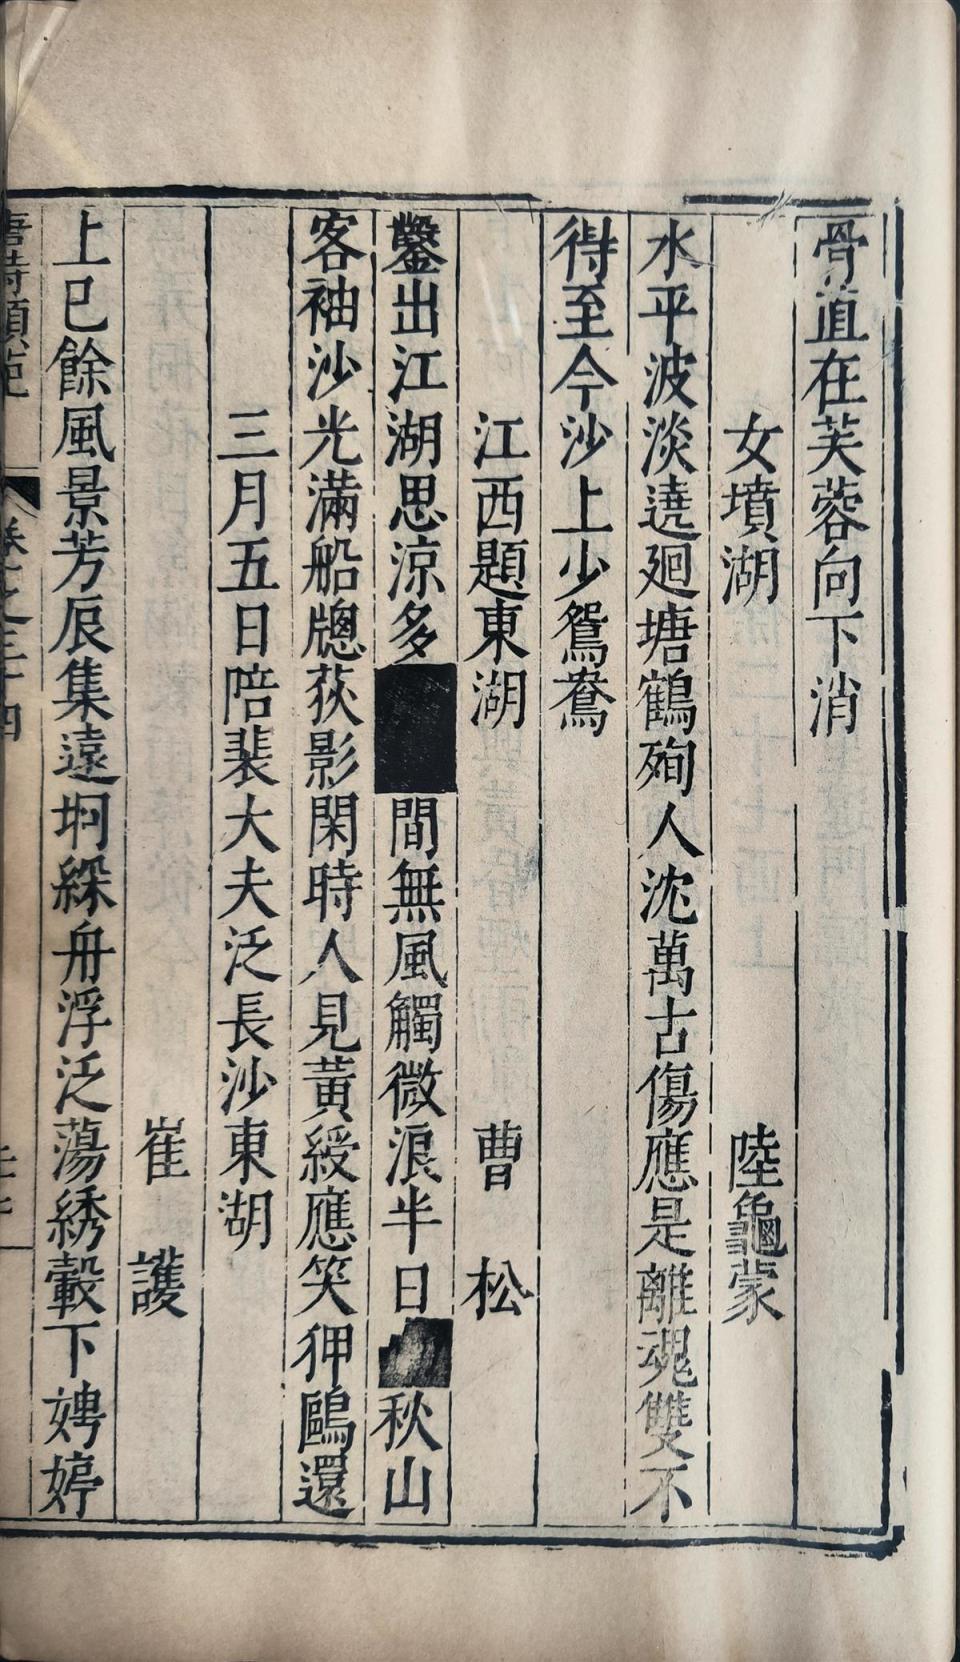 骨直在芙蓉向下消
女墳湖 陸龜蒙
水平波淡遶廻塘鶴殉人沈萬古傷應是離魂雙不
得至今沙上少鴛鴦
江西題東湖 曹松
鑿出江湖思涼多 間無風觸微浪半日 秋山
客袖沙光滿船牎荻影閑時人見黃綬應笑狎鷗還
三月五日陪裴大夫泛長沙東湖
崔護
上巳餘風景芳辰集遠坰綵舟浮泛蕩綉轂下娉婷
唐詩類苑 卷之三十四